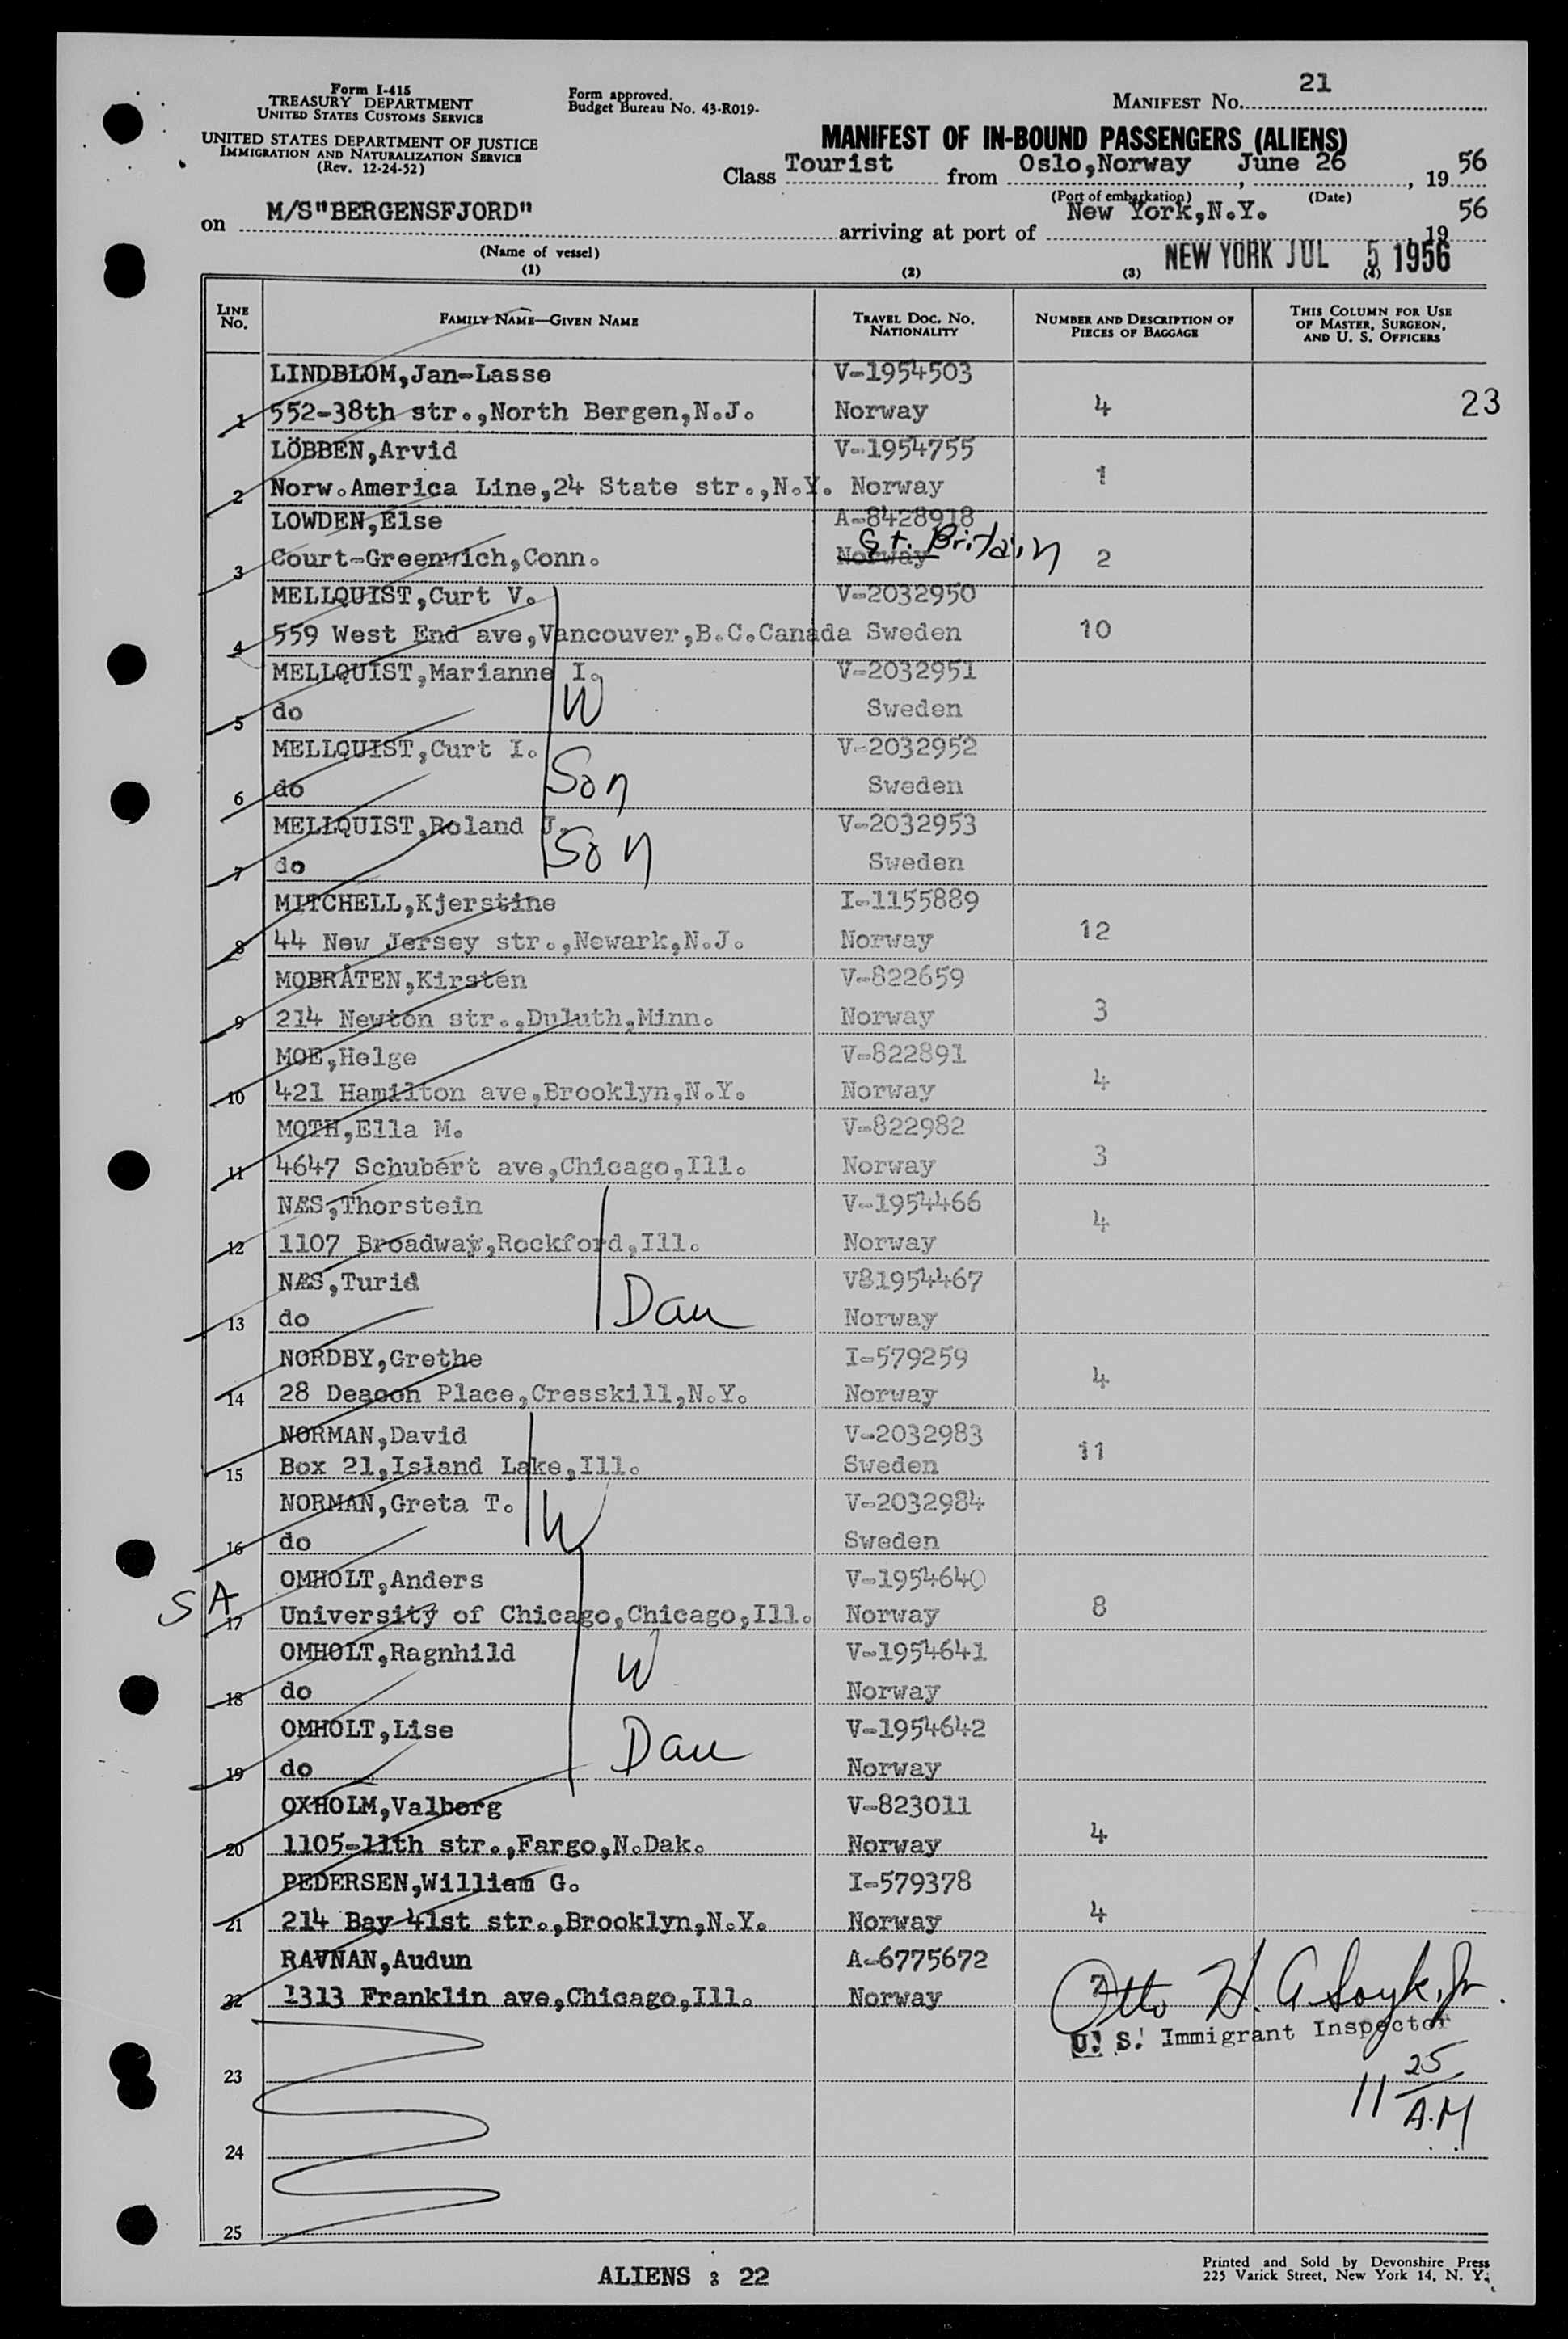 Form I-415
TREASURY DEPARTMENT
UNITED STATES CUSTOMS SERVICE
UNITED STATES DEPARTMENT OF JUSTICE
IMMIGRATION AND NATURALIZATION SERVICE
(Rev. 12-24-52)
Form approved.
Budget Bureau No. 43-R019-
MANIFEST No. 21
MANIFEST OF IN-BOUND PASSENGERS (ALIENS)
Class Tourist from Oslo,Norway , June 26 , 19 56
(Port of embarkation) (Date)
on M/S"BERGENSFJORD" arriving at port of New York,N.Y. 19 56
(Name of vessel)
NEW YORK JUL 5 1956
(1) (2) (3) (4)
LINE No. FAMILY NAME—GIVEN NAME TRAVEL DOC. NO. NATIONALITY NUMBER AND DESCRIPTION OF PIECES OF BAGGAGE THIS COLUMN FOR USE OF MASTER, SURGEON, AND U. S. OFFICERS
LINDBLOM,Jan-Lasse V-1954503
1 552-38th str.,North Bergen,N.J. Norway 4 23
LÖBBEN,Arvid V-1954755
2 Norw.America Line,24 State str.,N.Y. Norway 1
LOWDEN,Else A-8428918
3 Court-Greenwich,Conn. Norway Gt. Britain 2
MELLQUIST,Curt V. V-2032950
4 559 West End ave,Vancouver,B.C.Canada Sweden 10
MELLQUIST,Marianne I. V-2032951
5 do W Sweden
MELLQUIST,Curt I. V-2032952
6 do Son Sweden
MELLQUIST,Roland J. V-2032953
7 do Son Sweden
MITCHELL,Kjerstine I-1155889
8 44 New Jersey str.,Newark,N.J. Norway 12
MOBRÅTEN,Kirsten V-822659
9 214 Newton str.,Duluth,Minn. Norway 3
MOE,Helge V-822891
10 421 Hamilton ave,Brooklyn,N.Y. Norway 4
MOTH,Ella M. V-822982
11 4647 Schubert ave,Chicago,Ill. Norway 3
NÆS,Thorstein V-1954466
12 1107 Broadway,Rockford,Ill. Norway 4
NÆS,Turid V81954467
13 do Dau Norway
NORDBY,Grethe I-579259
14 28 Deacon Place,Cresskill,N.Y. Norway 4
NORMAN,David V-2032983
15 Box 21,Island Lake,Ill. Sweden 11
NORMAN,Greta T. V-2032984
16 do W Sweden
OMHOLT,Anders V-1954640
SA 17 University of Chicago,Chicago,Ill. Norway 8
OMHOLT,Ragnhild V-1954641
18 do W Norway
OMHOLT,Lise V-1954642
19 do Dau Norway
OXHOLM,Valborg V-823011
20 1105-11th str.,Fargo,N.Dak. Norway 4
PEDERSEN,William G. I-579378
21 214 Bay 41st str.,Brooklyn,N.Y. Norway 4
RAVNAN,Audun A-6775672
22 1313 Franklin ave,Chicago,Ill. Norway 7
Otto H. A
U. S. Immigrant Inspector
23
11 25 A.M
24
25
ALIENS : 22
Printed and Sold by Devonshire Press
225 Varick Street, New York 14, N. Y.